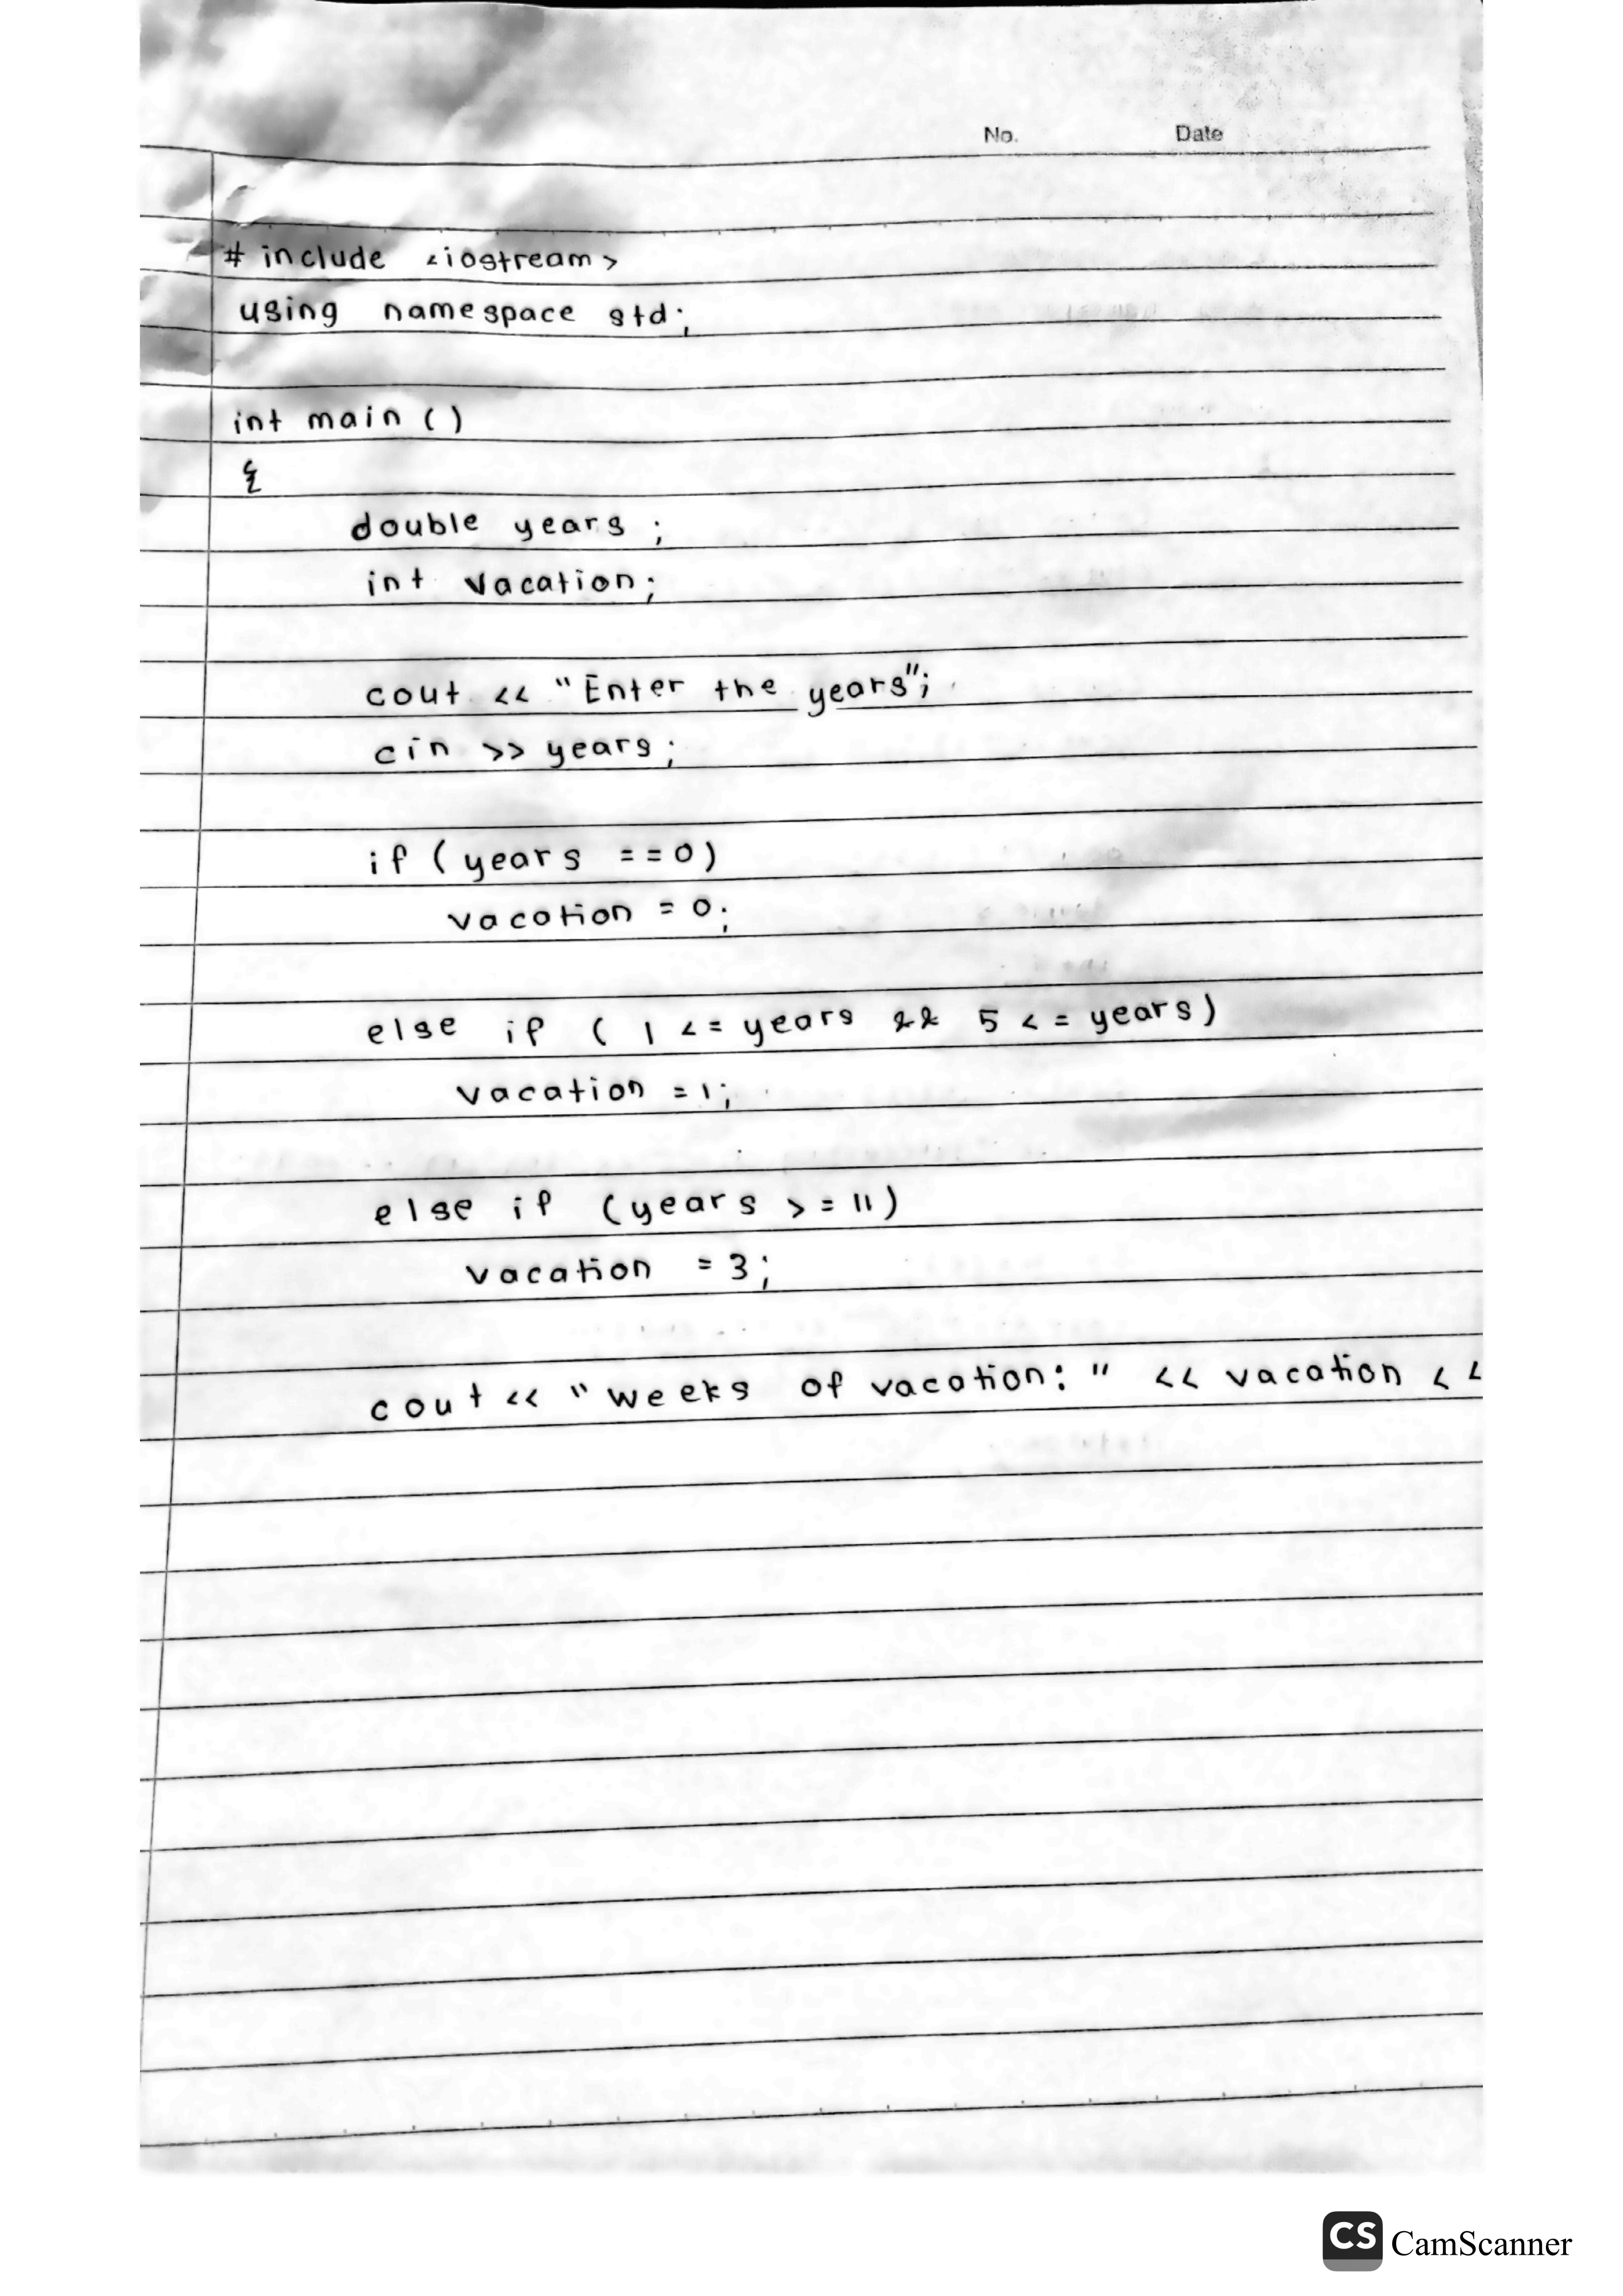 No. Date
# include <iostream>
using namespace std;
int main ()
{
double years ;
int vacation;
cout << "Enter the years";
cin >> years;
if ( years ==0)
vacation = 0;
else if ( 1 <= years && 5 <= years)
vacation =1;
else if (years >= 11)
vacation = 3;
cout << "weeks of vacation: " << vacation <<
CS CamScanner